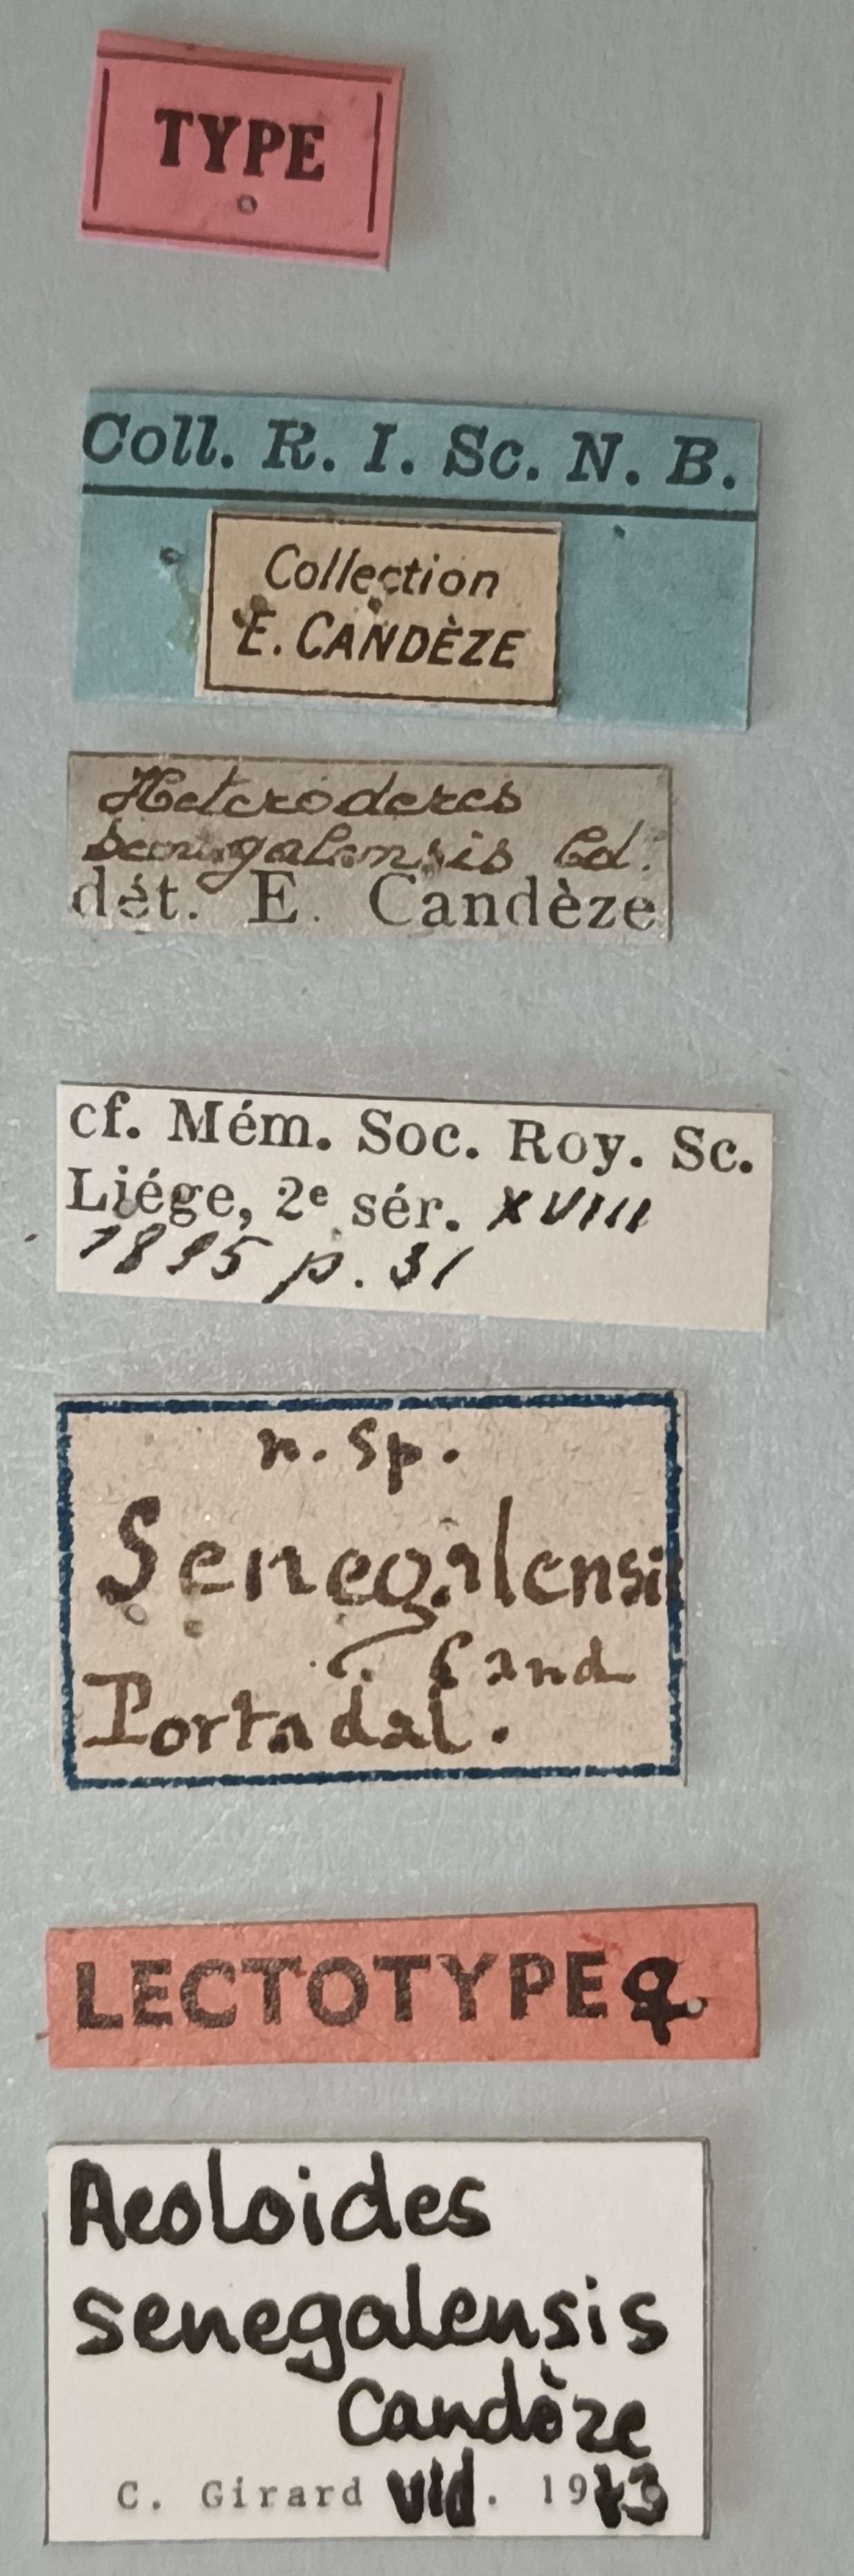 TYPE
Coll. R. I. Sc. N. B.
Collection
E. CANDÈZE
Heteroderes
senegalensis Cd.
dét. E. Candèze
cf. Mém. Soc. Roy. Sc.
Liége, 2e sér. XVIII
1895 p. 31
n. sp.
Senegalensis
Cand
Portadal.
LECTOTYPE ♀
Aeoloides
senegalensis
Candèze
C. Girard vid. 1973